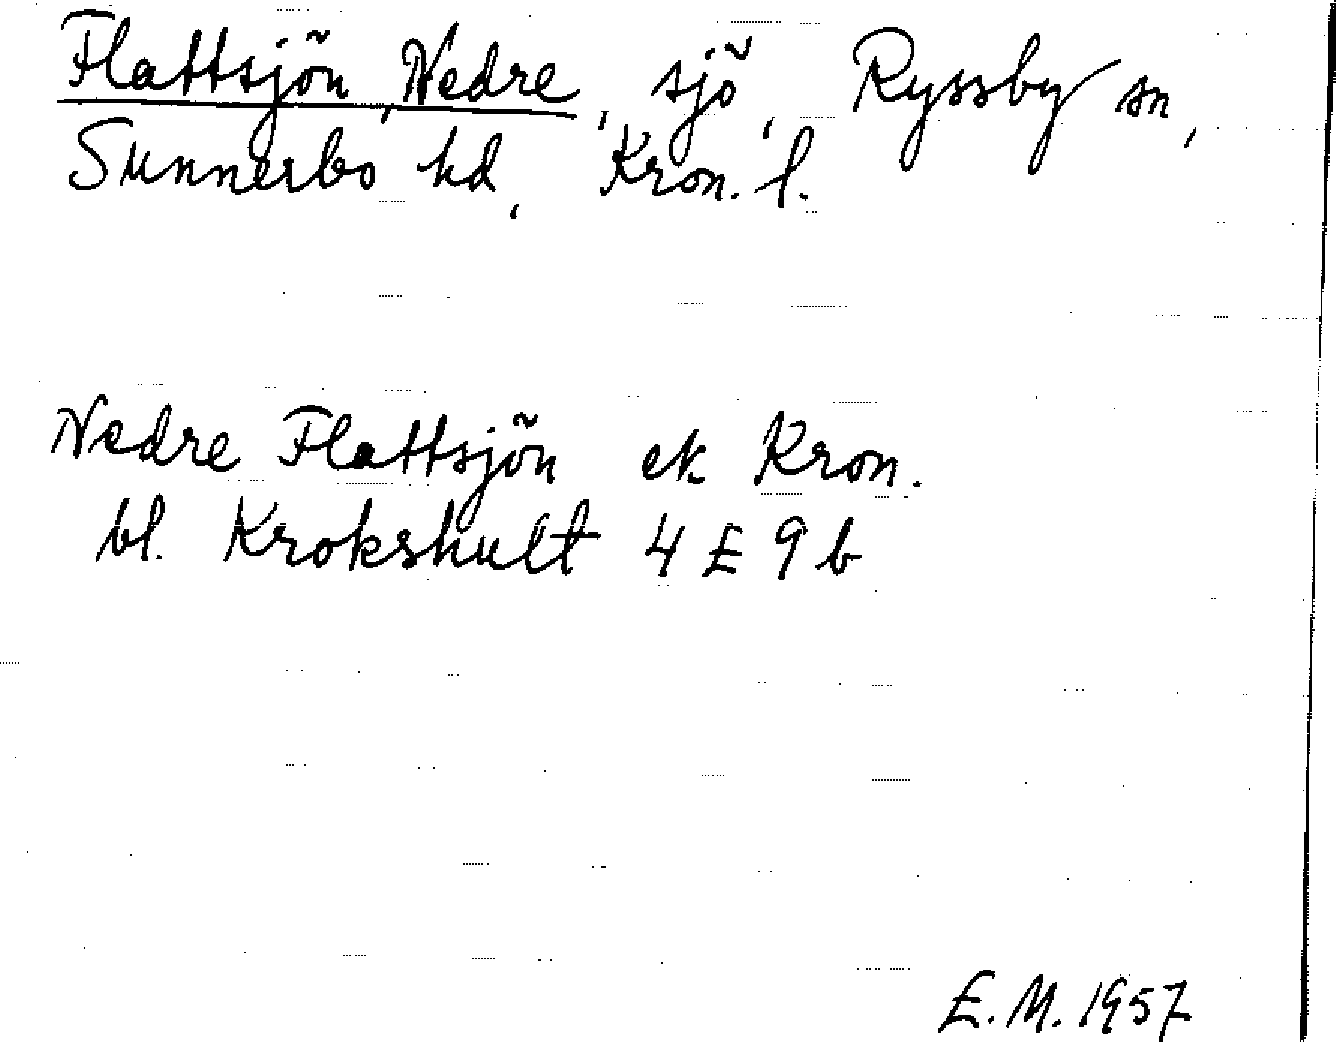 Flattsjön, Nedre, sjö, Ryssby sn,
Sunnerbo hd, Kron. l.
Nedre Flattsjön ek Kron.
bl. Krokshult 4 E 9 b
E.M. 1957